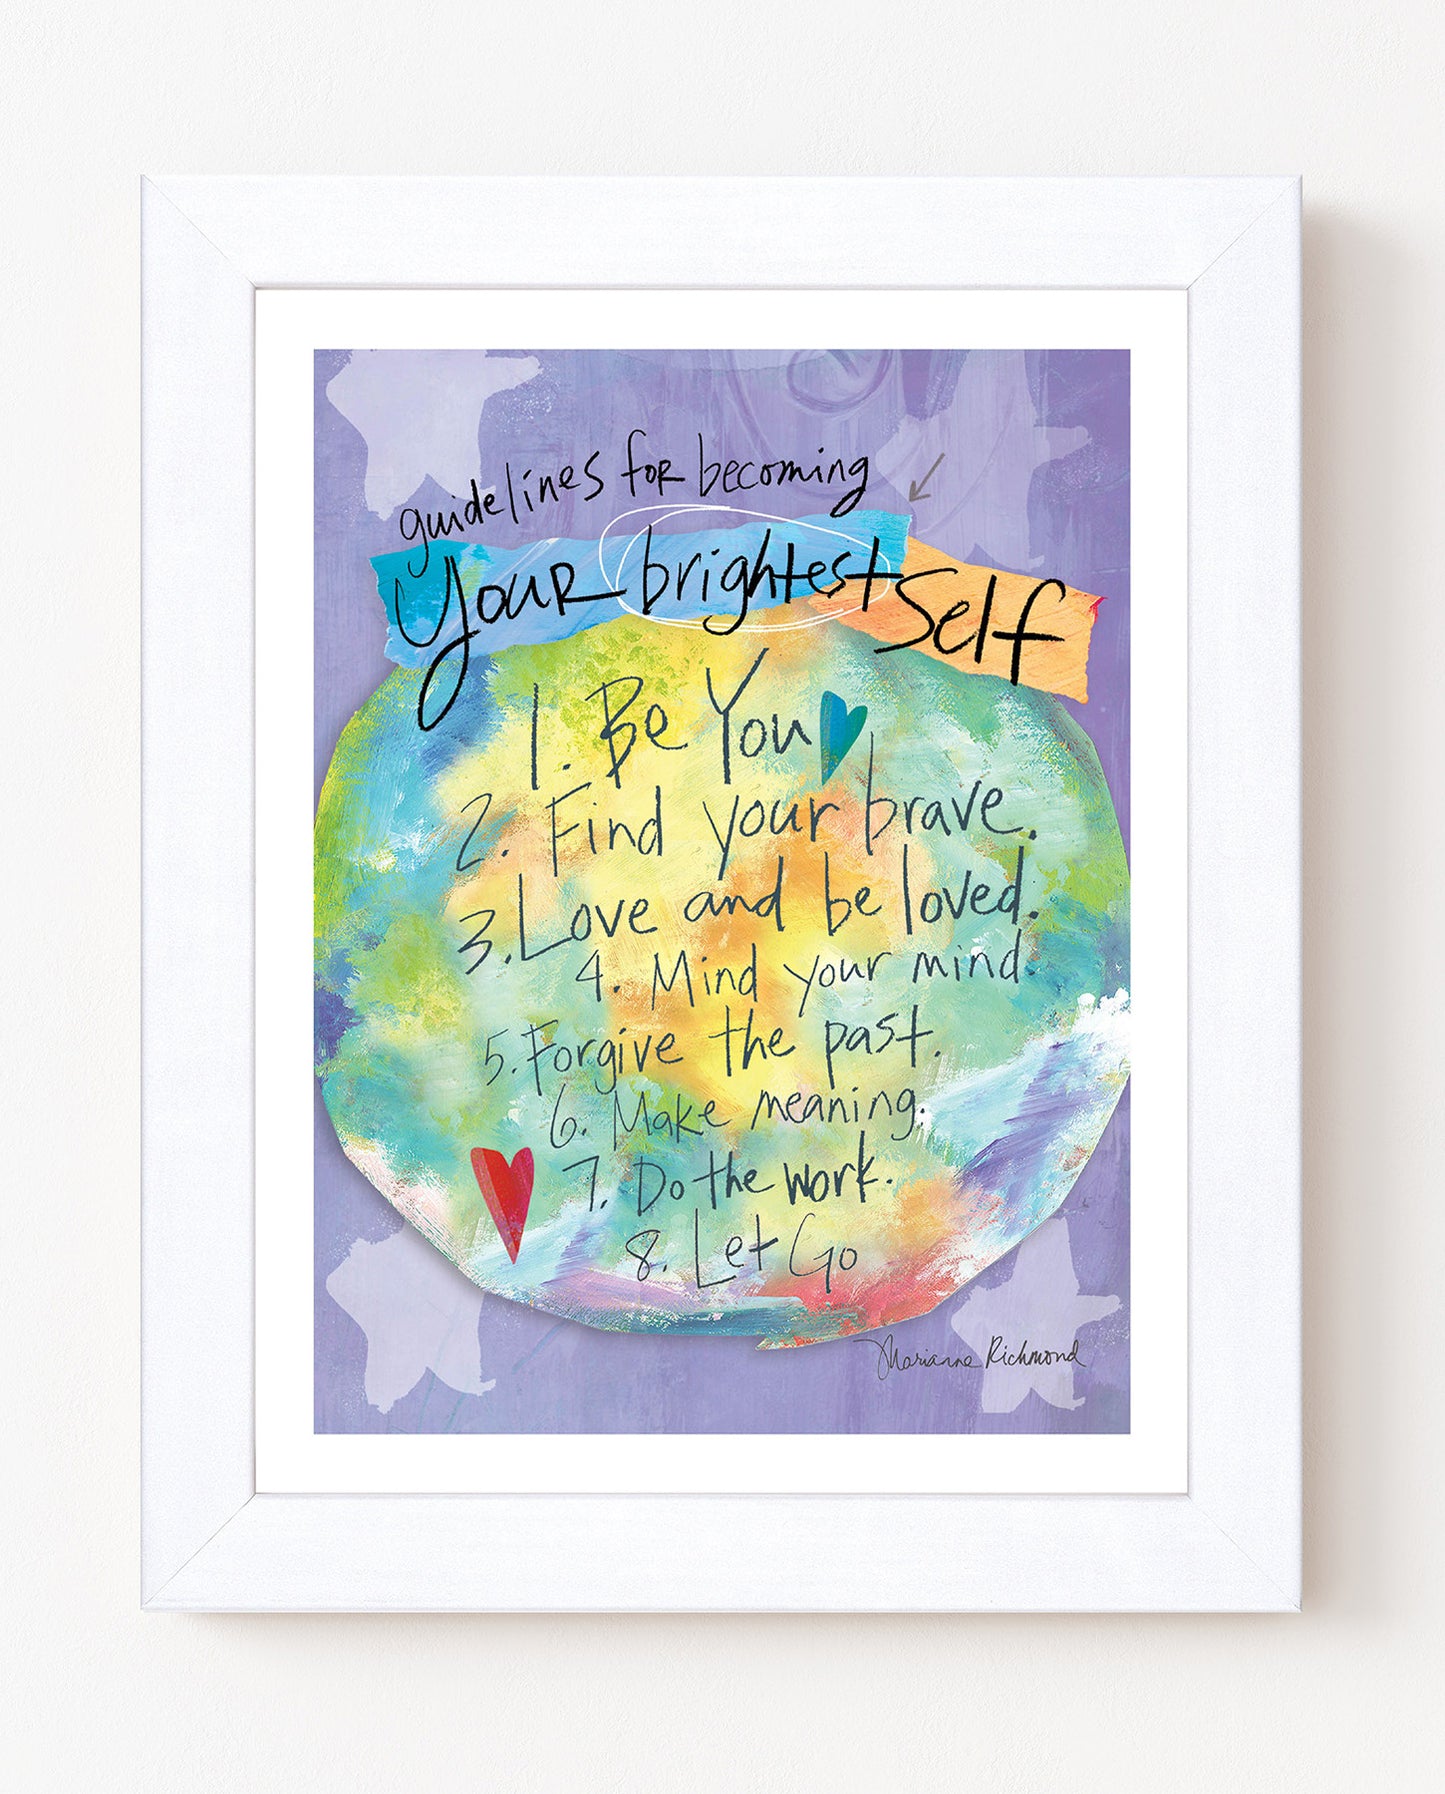 guidelines for becoming
Your brightest Self
1. Be You
2. Find your brave.
3. Love and be loved.
4. Mind your mind.
5. Forgive the past.
6. Make meaning.
7. Do the work.
8. Let Go
Marianne Richmond